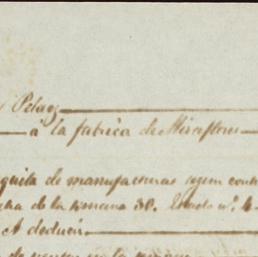 Pelaez
á la fabrica de Miraflores
quita de manufacturas segun cont
cha de la semana 38. Estado nº. 4
A deducir